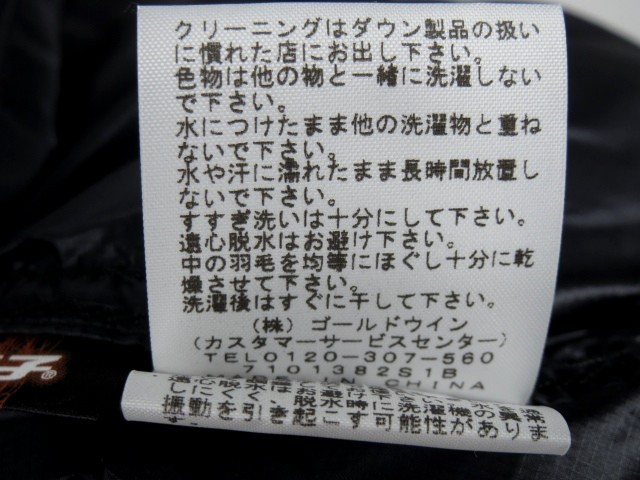 クリーニングはダウン製品の扱い
に慣れた店にお出し下さい。
色物は他の物と一緒に洗濯しない
で下さい。
水につけたまま他の洗濯物と重ね
ないで下さい。
水や汗に濡れたまま長時間放置し
ないで下さい。
すすぎ洗いは十分にして下さい。
遠心脱水はお避け下さい。
中の羽毛を均等にほぐし十分に乾
燥させて下さい。
洗濯後はすぐに干して下さい。
(株)ゴールドウイン
(カスタマーサービスセンター)
TEL0120-307-560
7101382S1B
CHINA
振動を引き起こす可能性がありま